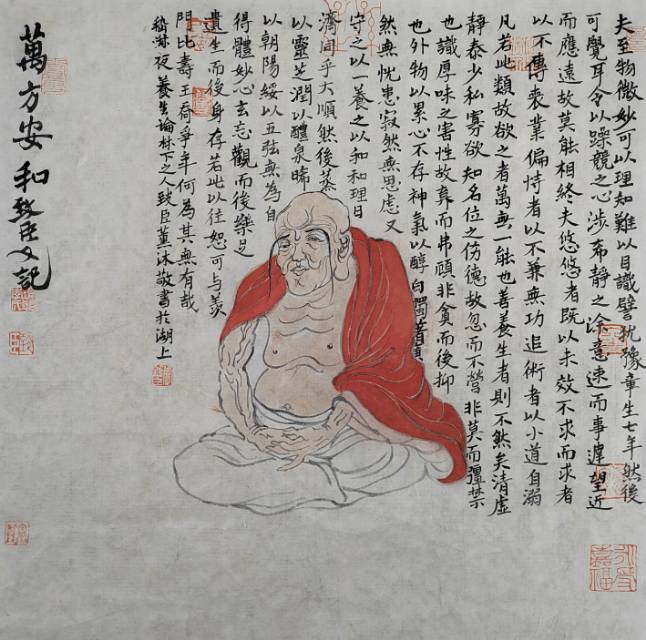 夫至物微妙可以理知難以目識譬犹豫章生七年然後
可覺耳今以躁競之心涉希靜之塗意速而事遲望近
而應遠故莫能相終夫悠悠者既以未效不求而求者
以不傳喪業偏恃者以不兼無功追術者以小道自溺
凡若此類故欲之者萬無一能也善養生者則不然矣清虛
靜泰少私寡欲知名位之伤德故忽而不營非莫而彊禁
也識厚味之害性故棄而弗顧非貪而後抑
也外物以累心不存神氣以醇白獨著曠
然無忧患寂然無思慮又
守之以一養之以和和理日
濟同乎大順然後蒸
以靈芝潤以醴泉晞
以朝陽綏以五弦無為自
得體妙心玄忘觀而後樂足
遺生而後身存若此以往恕可与羨
門比壽王喬爭年何為其無有哉
嵇叔夜養生論林下之人致臣薰沐敬書於湖上
萬方安和致臣又記
引受嘉福